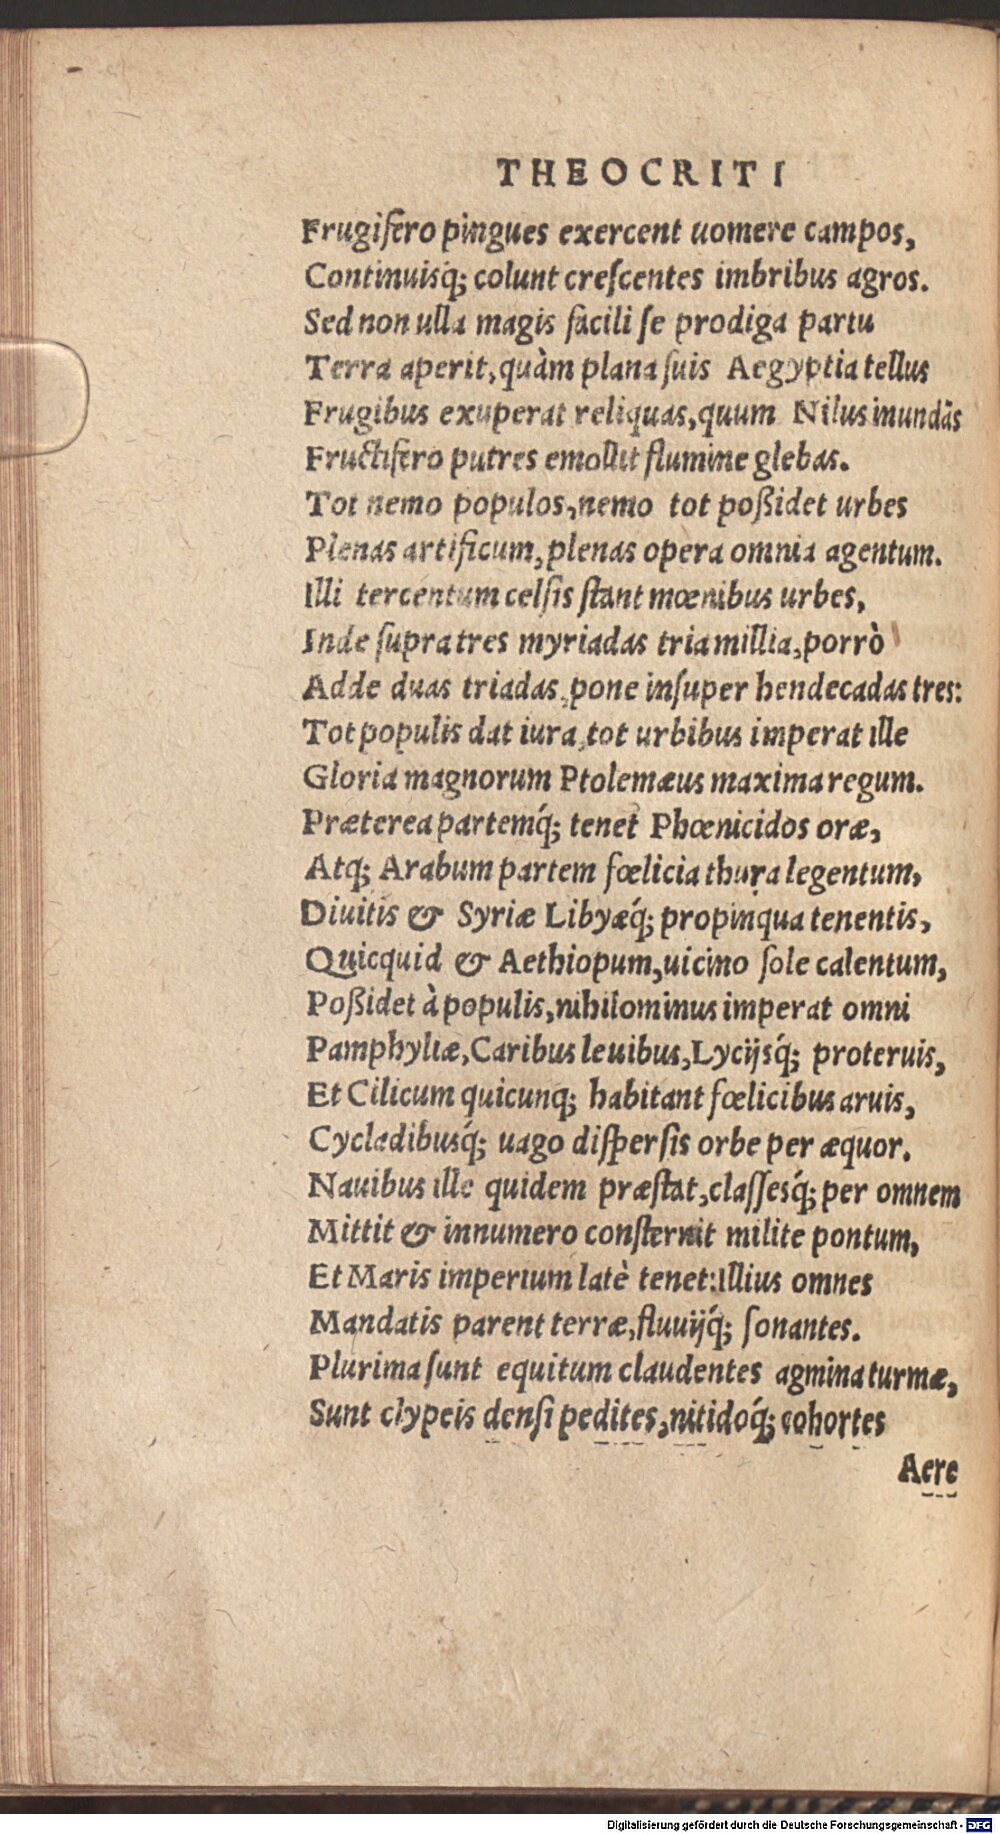 THEOCRITI
Frugifero pingues exercent uomere campos,
Continuisq́; colunt creſcentes imbribus agros.
Sed non ulla magis facili ſe prodiga partu
Terra aperit, quàm plana ſuis Aegyptia tellus
Frugibus exuperat reliquas, quum Nilus inundãs
Fructifero putres emollit flumine glebas.
Tot nemo populos, nemo tot poßidet urbes
Plenas artificum, plenas opera omnia agentum.
Illi tercentum celſis ſtant mœnibus urbes,
Inde ſupra tres myriadas tria millia, porrò
Adde duas triadas, pone inſuper hendecadas tres:
Tot populis dat iura, tot urbibus imperat ille
Gloria magnorum Ptolemæus maxima regum.
Præterea partemq́; tenet Phœnicidos oræ,
Atq; Arabum partem fœlicia thura legentum,
Diuitis & Syriæ Libyæq́; propinqua tenentis,
Quicquid & Aethiopum, uicino ſole calentum,
Poßidet à populis, nihilominus imperat omni
Pamphyliæ, Caribus leuibus, Lycijsq́; proteruis,
Et Cilicum quicunq; habitant fœlicibus aruis,
Cycladibusq́; uago diſperſis orbe per æquor.
Nauibus ille quidem præſtat, claſſesq́; per omnem
Mittit & innumero conſternit milite pontum,
Et Maris imperium latè tenet: illius omnes
Mandatis parent terræ, fluuijq́; ſonantes.
Plurima ſunt equitum claudentes agmina turmæ,
Sunt clypeis denſi pedites, nitidoq́; cohortes
Aere
Digitalisierung gefördert durch die Deutsche Forschungsgemeinschaft - DFG